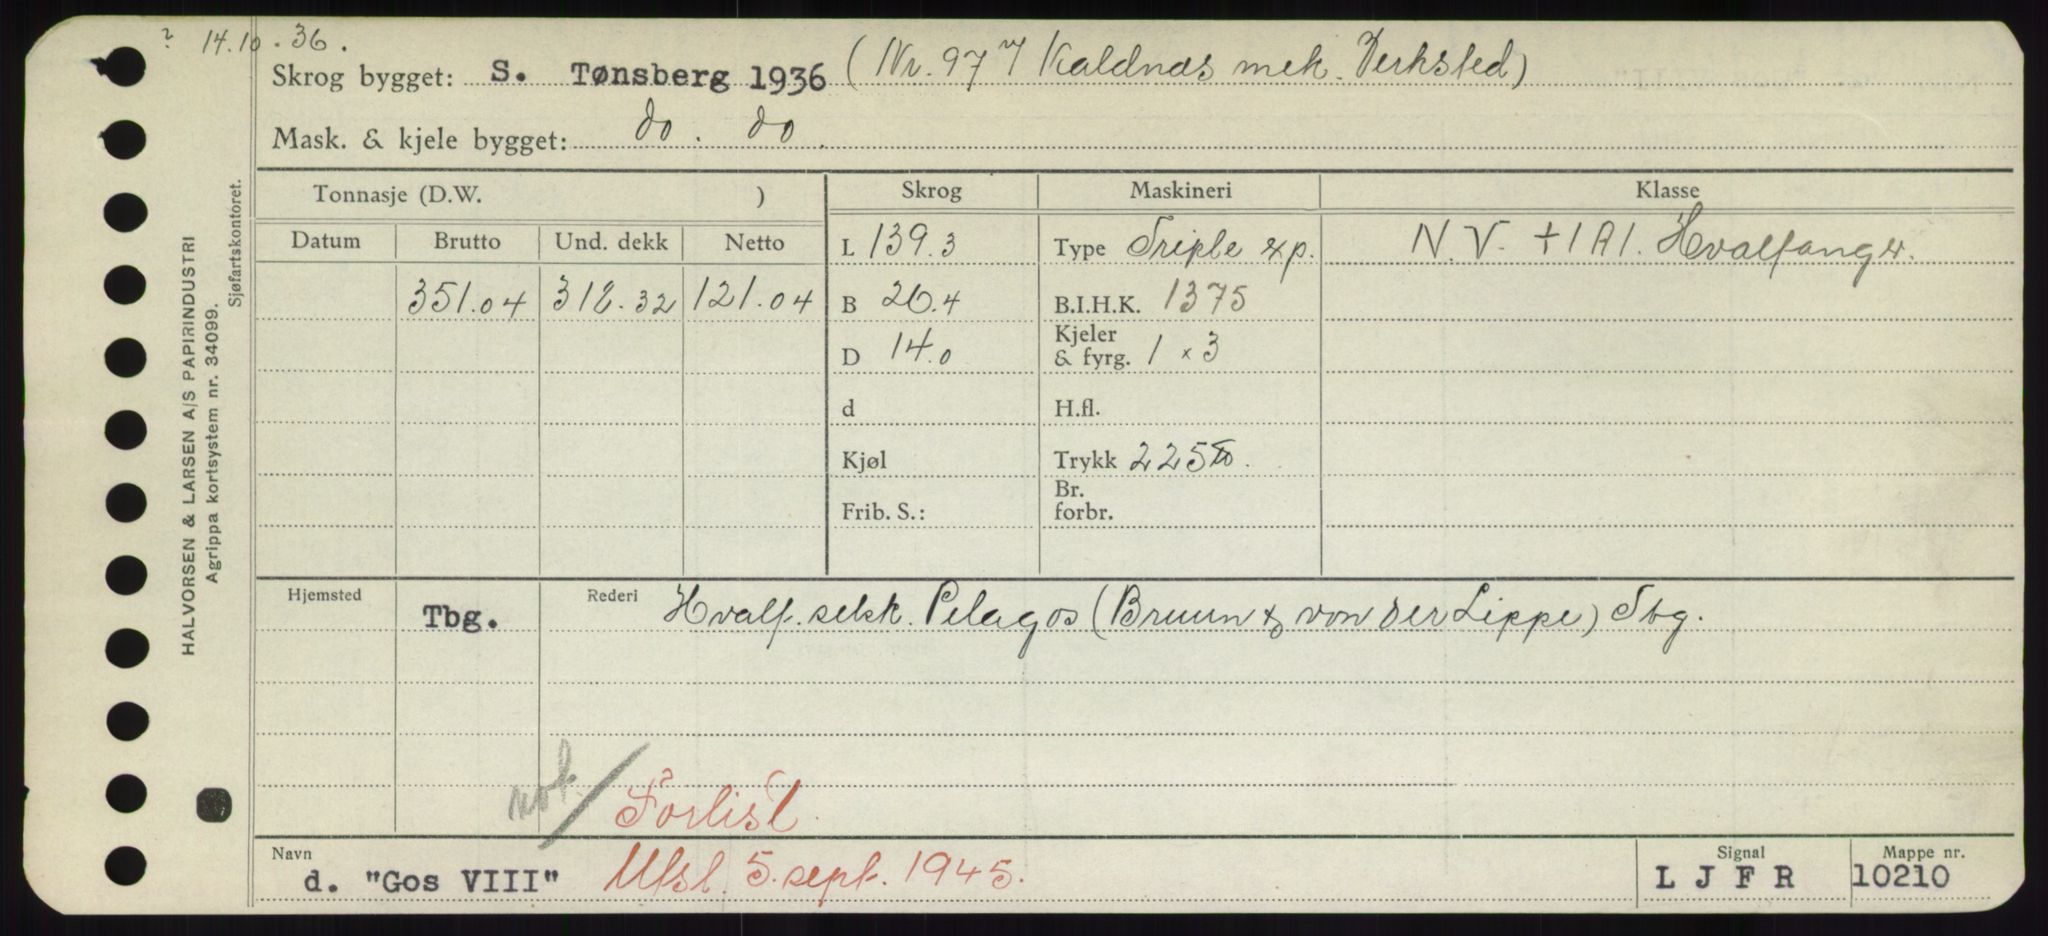 ? 14.10.36.
Skrog bygget: S. Tønsberg 1936 (Nr. 977 Kaldnæs mek. Verksted)
Mask. & kjele bygget: do. do.
HALVORSEN & LARSEN A/S PAPIRINDUSTRI
Agrippa kortsystem nr. 34099.
Sjøfartskontoret.
Tonnasje (D.W. ) Skrog Maskineri Klasse
Datum Brutto Und. dekk Netto L 139.3 Type Triple exp. N.V. +1A1. Hvalfanger.
351.04 312.32 121.04 B 26.4 B.I.H.K. 1375
D 14.0 Kjeler & fyrg. 1 x 3
d H.fl.
Kjøl Trykk 225 lb.
Frib. S.: Br. forbr.
Hjemsted Tbg. Rederi Hvalf. selsk. Pelagos (Bruun & von der Lippe) Tbg.
not. Forlist.
Navn Signal Mappe nr.
d. "Gos VIII" Utsl. 5. sept. 1945. L J F R 10210